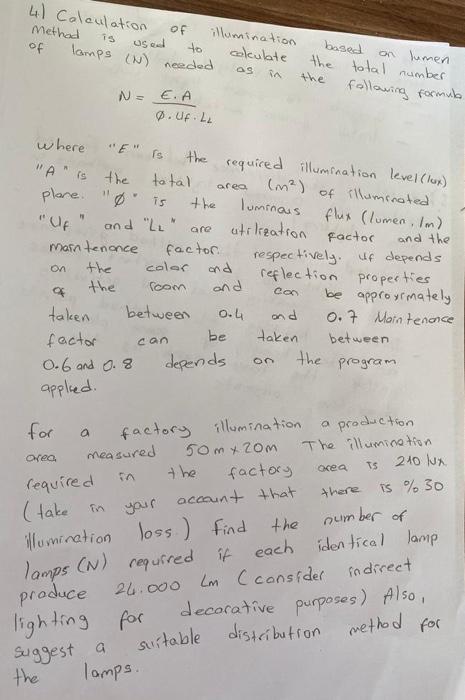 4) Calculation of illumination based on lumen
Method is used to calculate the total number
of lamps (N) needed as in the following formula
N = E.A / Ø.Uf.LL
where "E" is the required illumination level (lux)
"A" is the total area (m²) of illuminated
plane. "Ø" is the luminous flux (lumen, lm)
"Uf" and "LL" are utilization factor and the
maintenance factor. respectively. Uf depends
on the color and reflection properties
of the room and can be approximately
taken between 0.4 and 0.7 Maintenance
factor can be taken between
0.6 and 0.8 depends on the program
applied.
for a factory illumination a production
area measured 50m x 20m The illumination
required in the factory area is 210 lux
(take in your account that there is %30
illumination loss.) find the number of
lamps (N) required if each identical lamp
produce 24.000 Lm (consider indirect
lighting for decorative purposes) Also,
suggest a suitable distribution method for
the lamps.